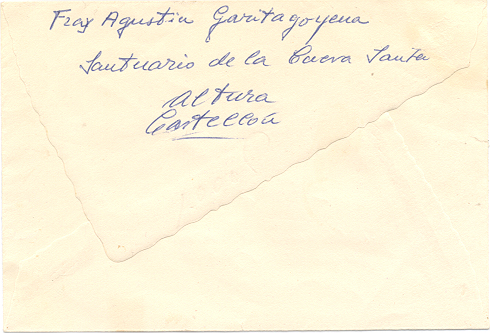 Fray Agustin Garitagoyena
Santuario de la Cueva Santa
Altura
Castellón